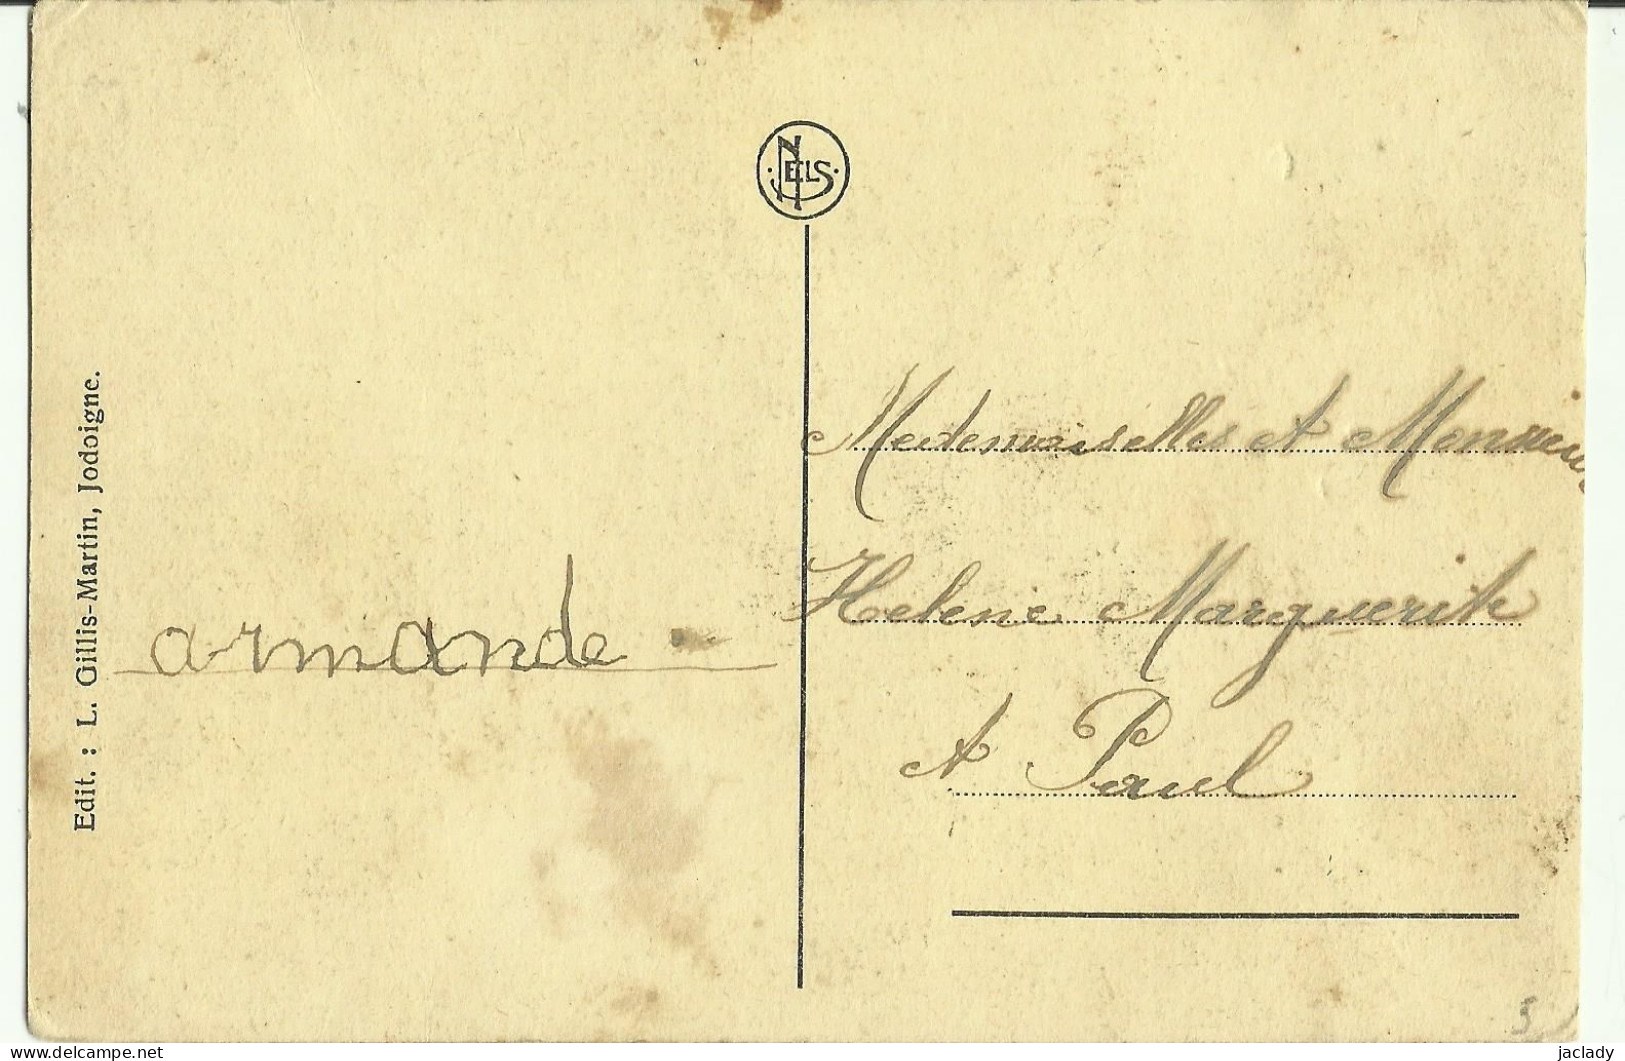 NELS
Edit. : L. Gillis-Martin, Jodoigne.
armande
Medemoiselles et Monsieur
Helene Marguerite
et Paul
3
delcampe.net
jaclady